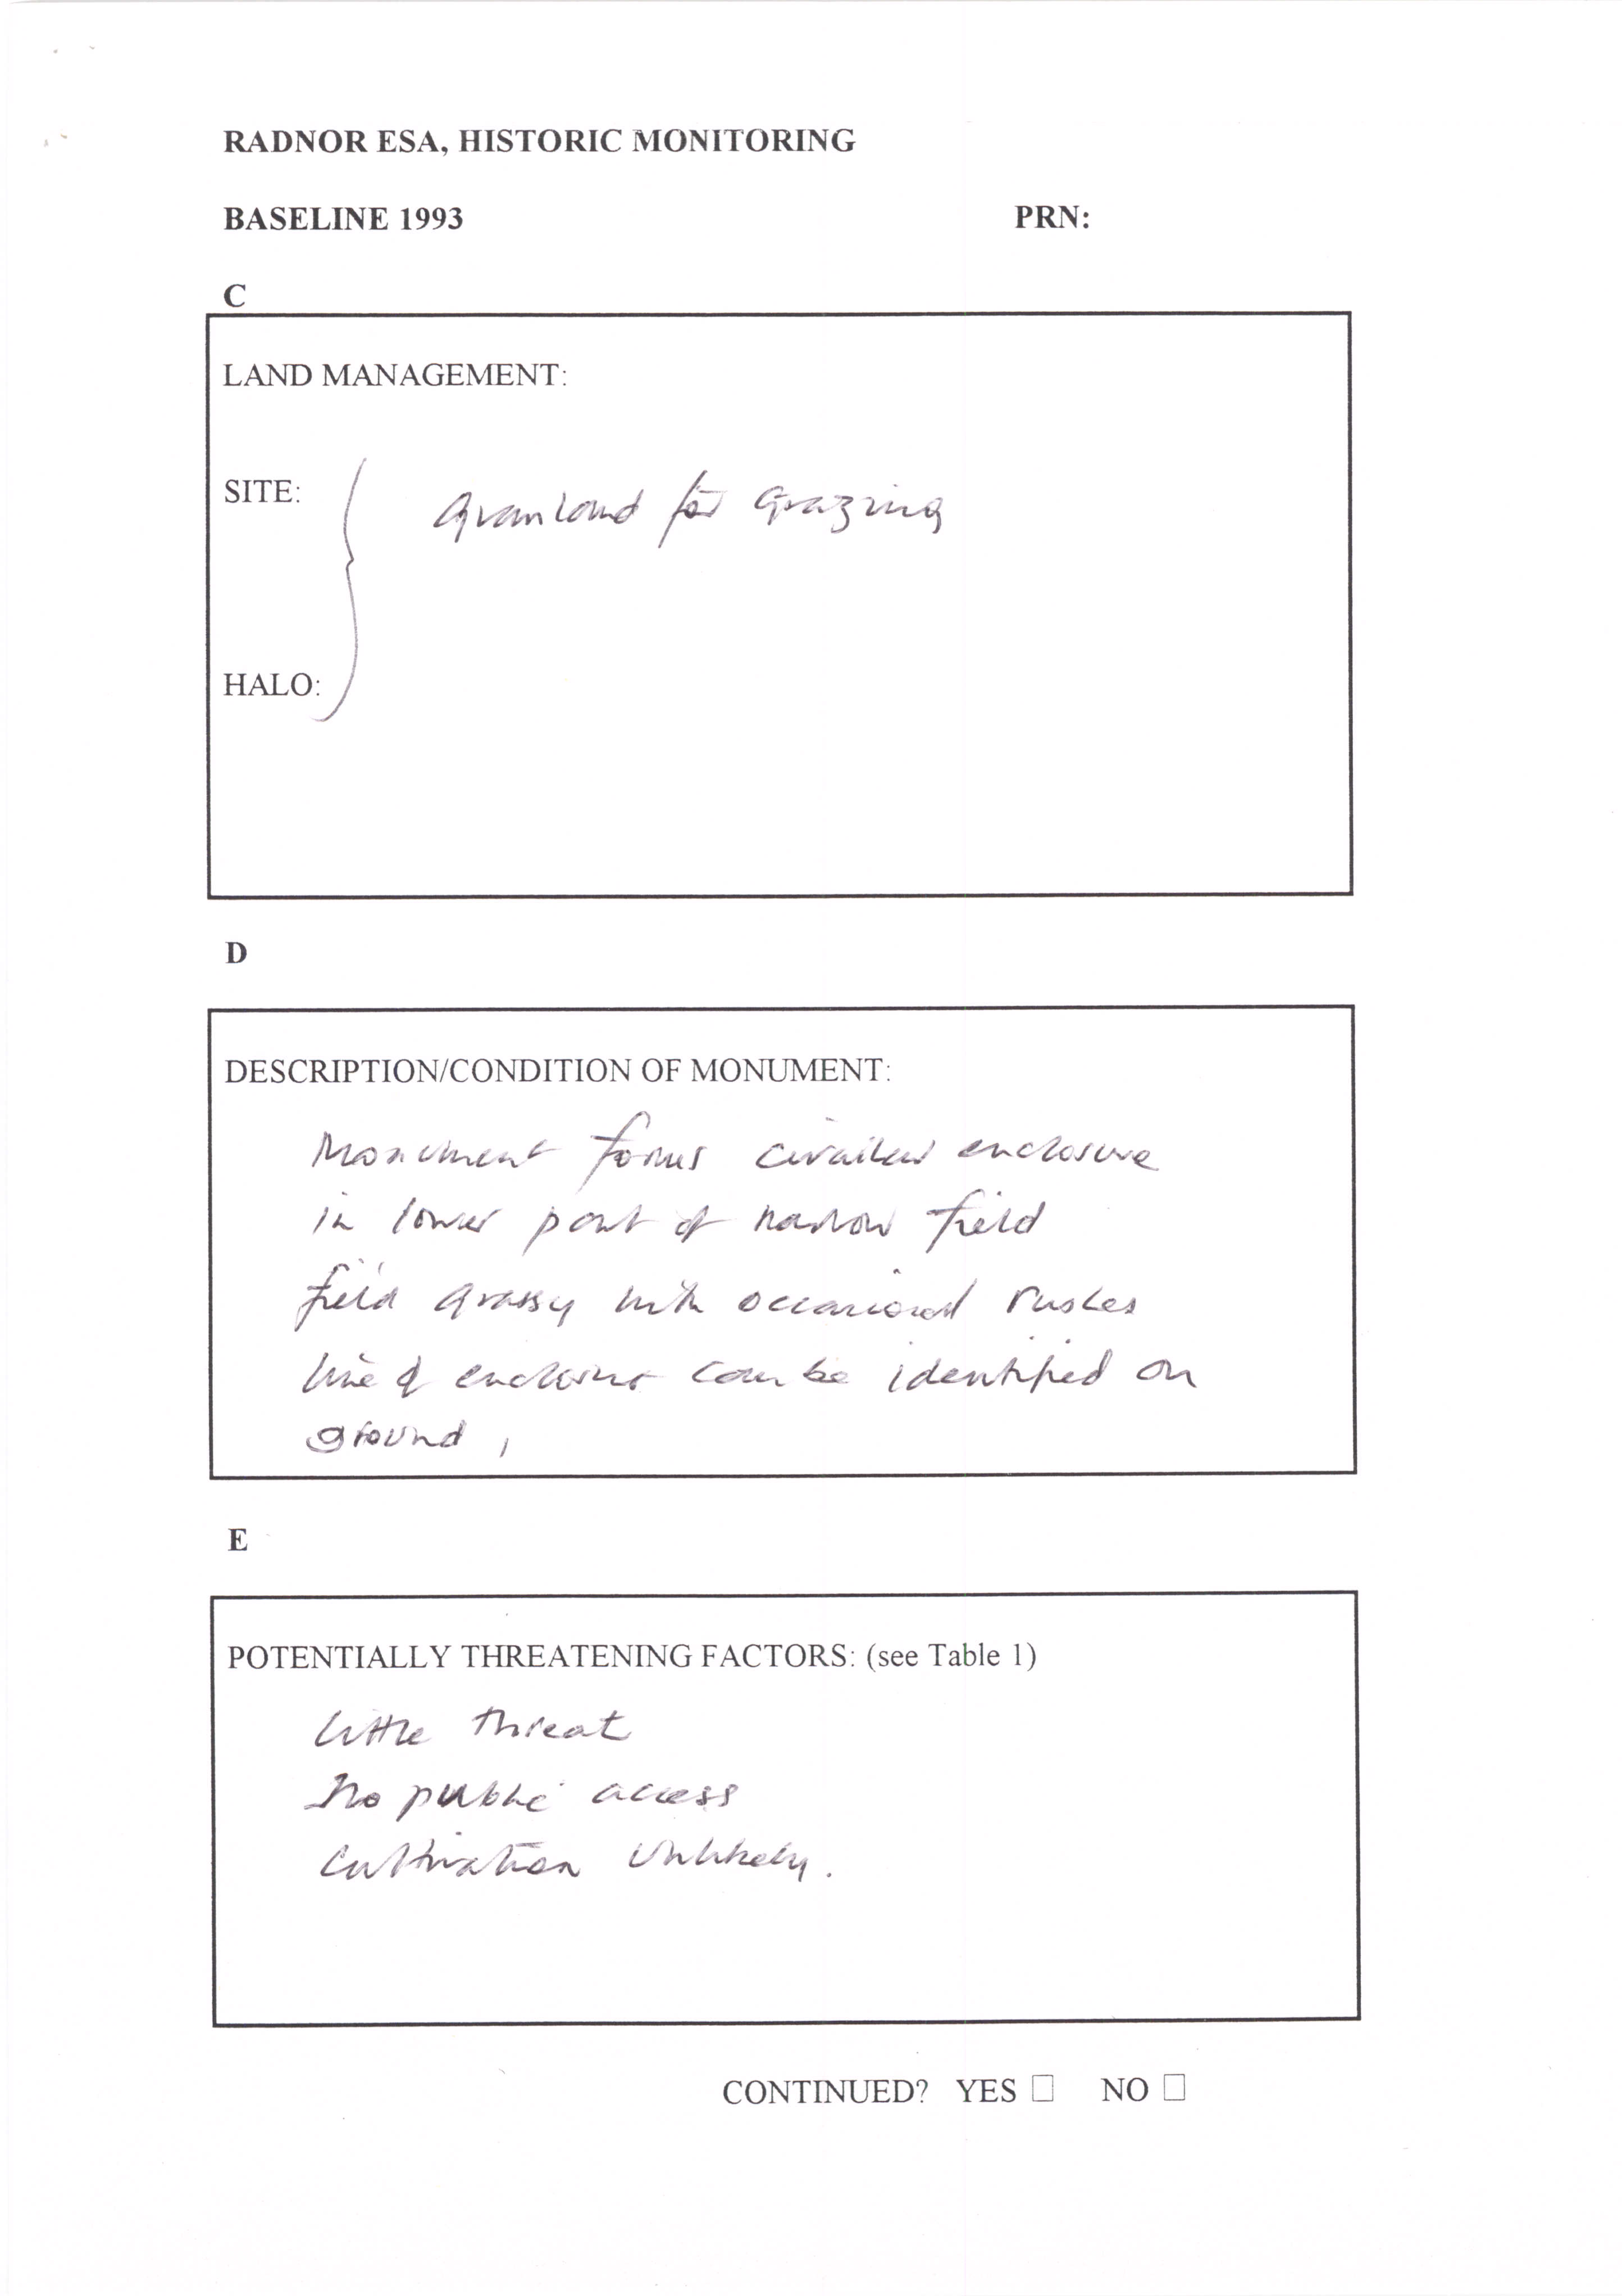 RADNOR ESA, HISTORIC MONITORING
BASELINE 1993 PRN:
C
LAND MANAGEMENT:
SITE: Grassland for Grazing
HALO:
D
DESCRIPTION/CONDITION OF MONUMENT:
Monument forms circular enclosure
in lower part of narrow field
field grassy with occasional rushes
line of enclosure can be identified on
ground,
E
POTENTIALLY THREATENING FACTORS: (see Table 1)
Little threat
No public access
Cultivation Unlikely.
CONTINUED? YES ☐ NO ☐